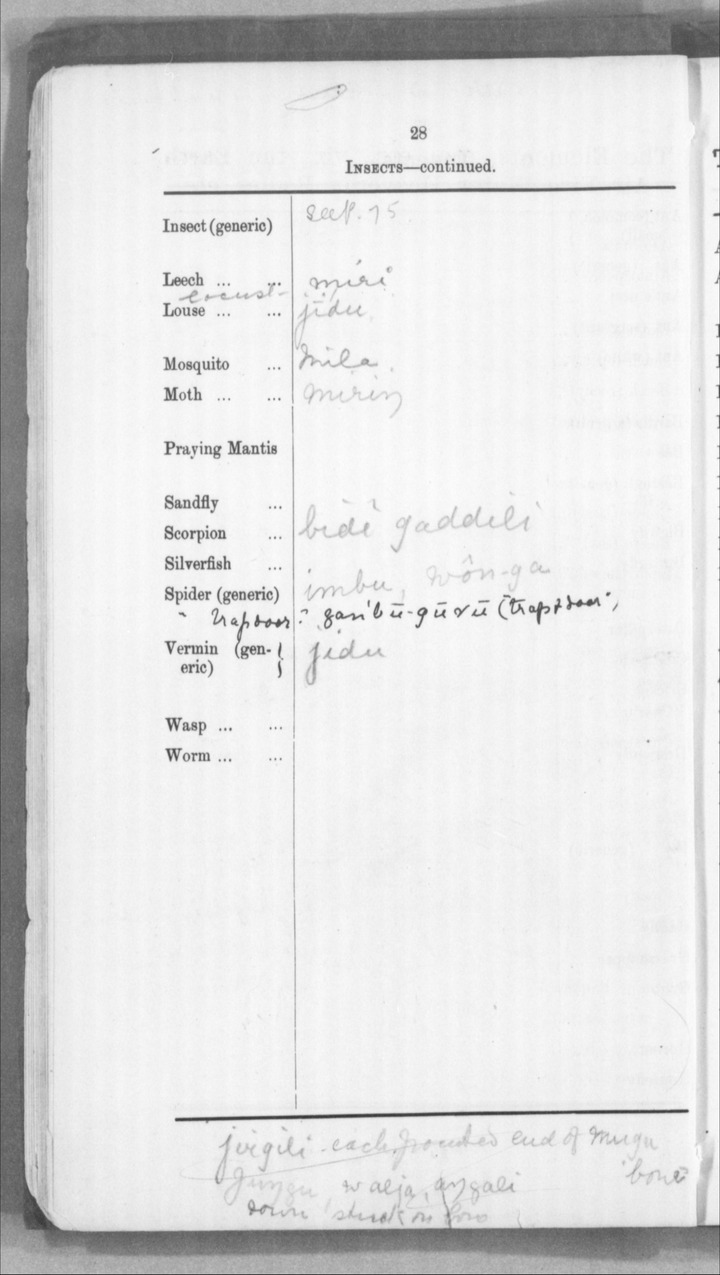 28
INSECTS—continued.
Insect (generic) seep. 75
Leech ... ... miri
locust
Louse ... ... jidu
Mosquito ... mila
Moth ... ... miriŋ
Praying Mantis
Sandfly ...
Scorpion ... bidi gaddili
Silverfish ...
Spider (generic) imbu, wôn-ga
" trapdoor
Vermin (generic) jidu
Wasp ... ...
Worm ... ...
jirgili - each pointed end of mugu
bone
waljа, aŋgali
down stuck on